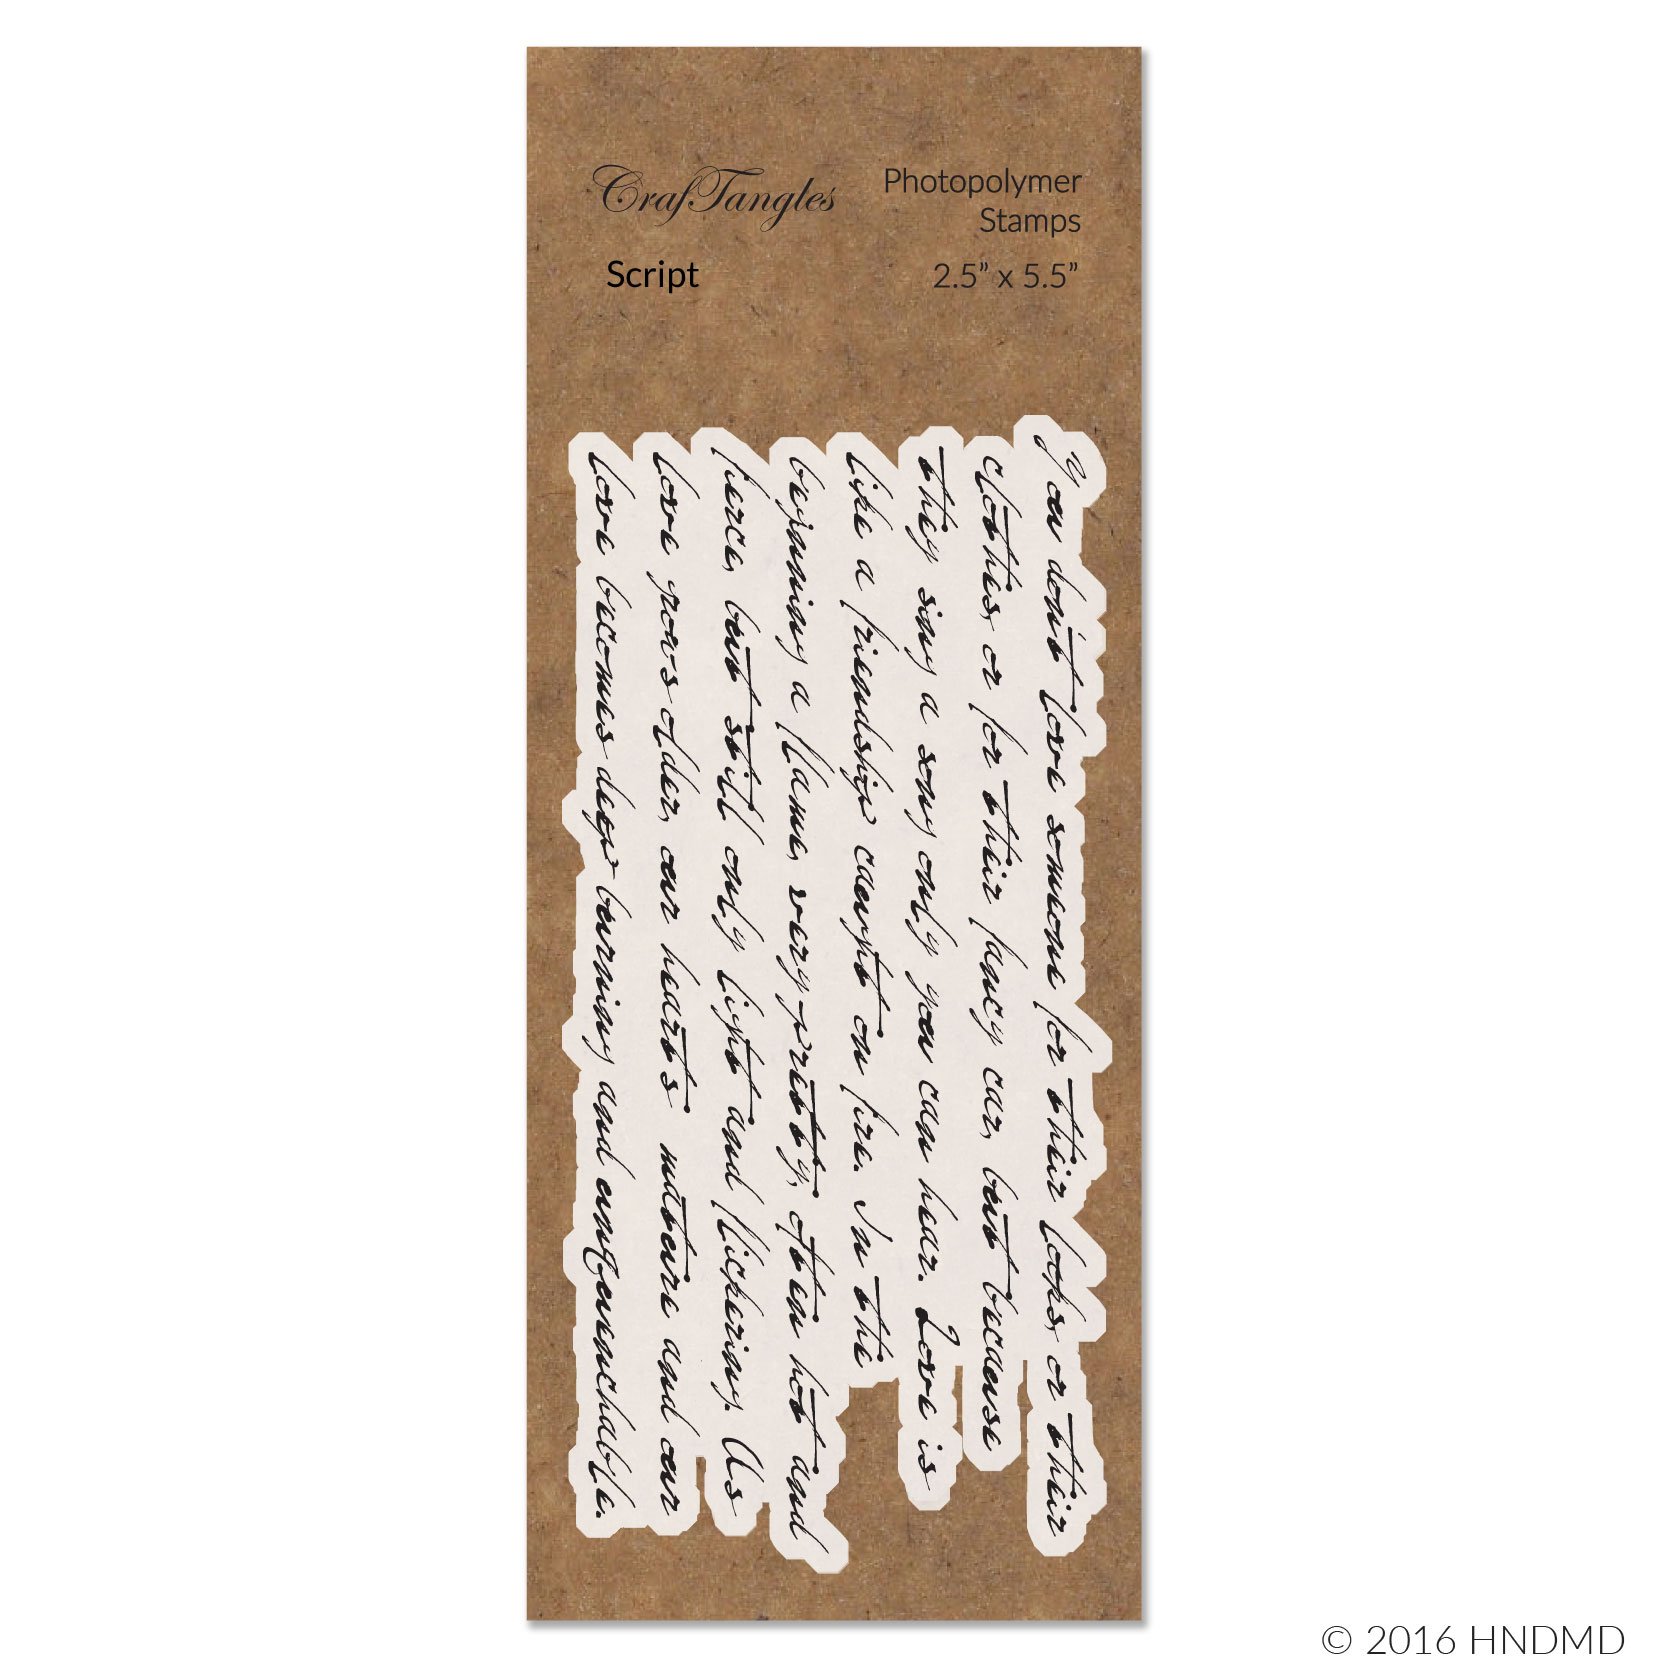 CrafTangles
Photopolymer
Stamps
Script
2.5” x 5.5”
you don't love someone for their looks, or their
clothes, or for their fancy car, but because
they sing a song only you can hear. Love is
like a friendship caught on fire. In the
beginning a flame, very pretty, often hot and
fierce, but still only light and flickering. As
love grows older, our hearts mature and our
love becomes deep burning and unquenchable.
© 2016 HNDMD